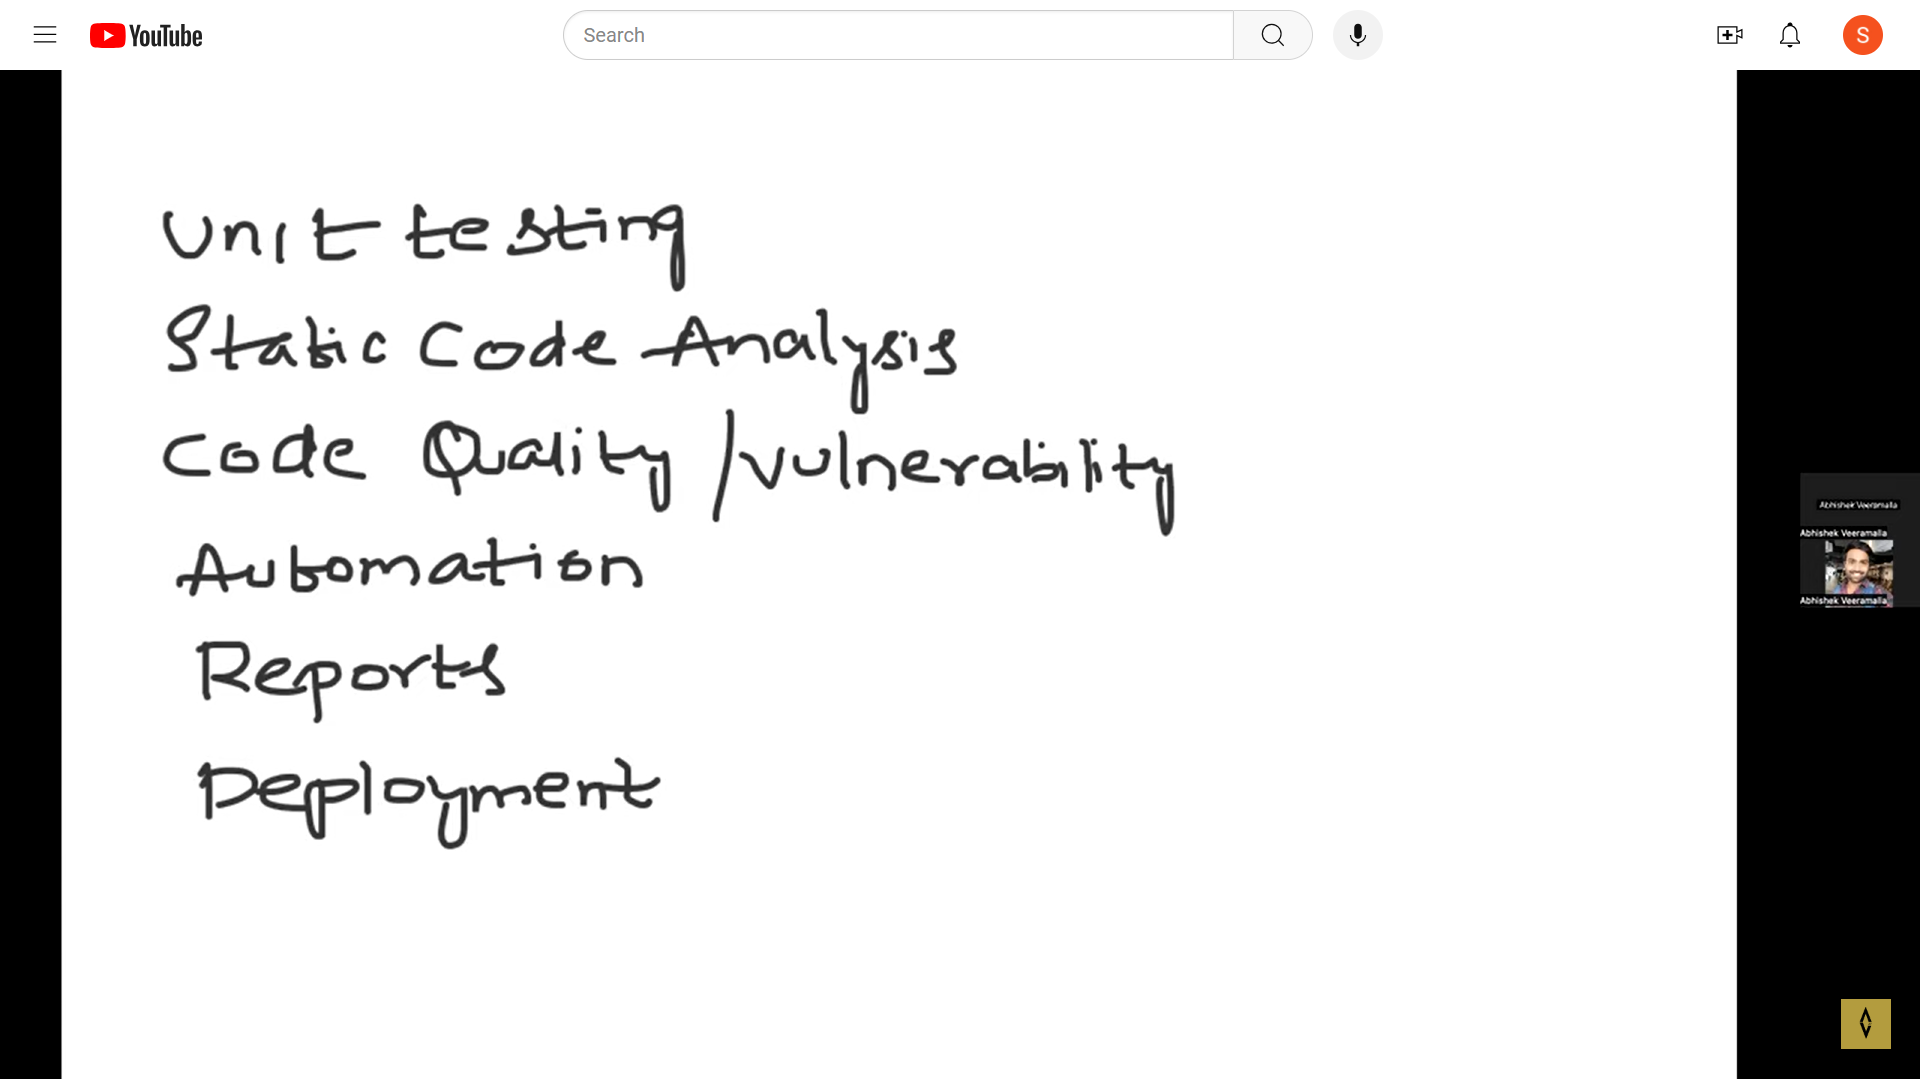 YouTube
Search
S
Unit testing
Static Code Analysis
Code Quality /vulnerability
Automation
Reports
Deployment
Abhishek Veeramalla
Abhishek Veeramalla
Abhishek Veeramalla